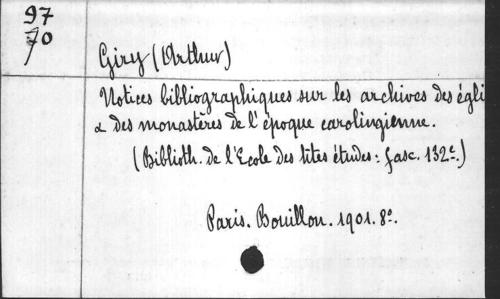 97
70
Giry (Arthur)
Notices bibliographiques sur les archives des égli
& des monastères de l'époque carolingienne.
(Biblioth. de l'Ecole des htes études: fasc. 132e.)
Paris. Bouillon. 1901. 8o.